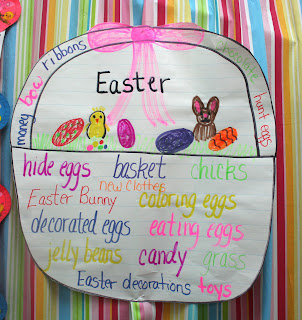 money bow ribbons
chocolate
hunt eggs
Easter
hide eggs basket chicks
new clothes
Easter Bunny coloring eggs
decorated eggs eating eggs
jelly beans candy grass
Easter decorations toys